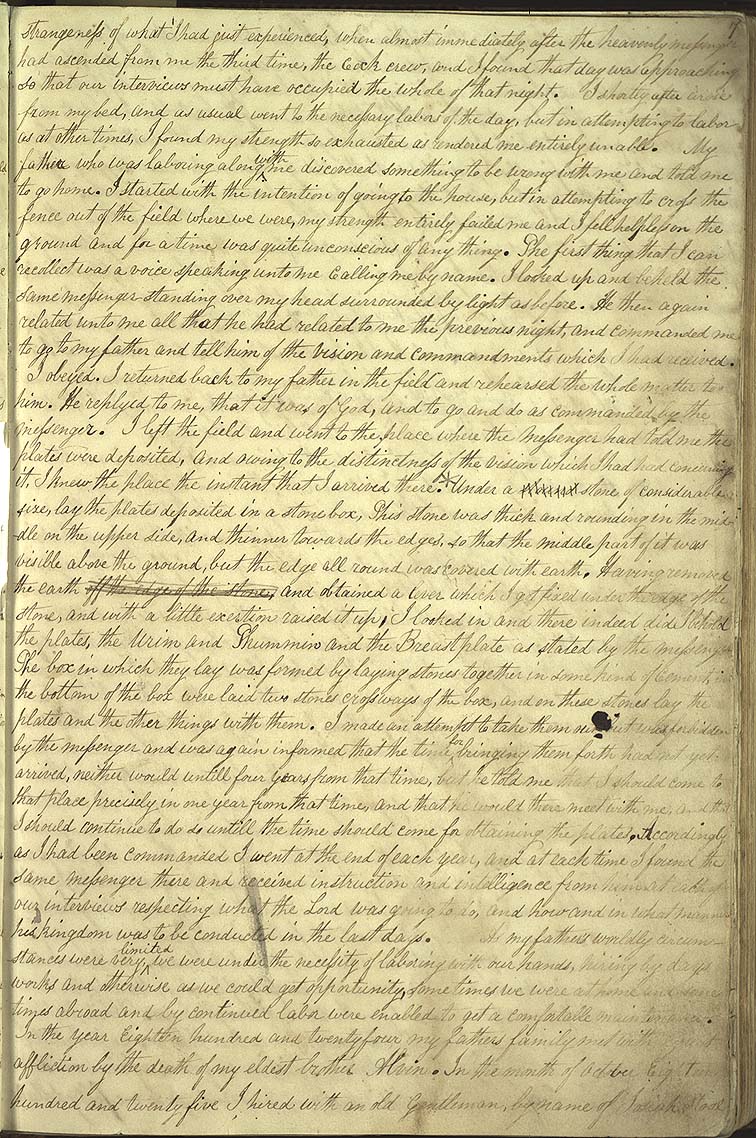 7
strangeness of what I had just experienced, when almost immediately after the heavenly messenger
had ascended from me the third time, the Cock crew, and I found that day was approaching
so that our interviews must have occupied the whole of that night. I shortly after arose
from my bed, and as usual went to the necessary labors of the day, but in attempting to labor
as at other times, I found my strength so exhausted as rendered me entirely unable. My
father who was laboring along with me discovered something to be wrong with me and told me
to go home. I started with the intention of going to the house, but in attempting to cross the
fence out of the field where we were, my strength entirely failed me and I fell helpless on the
ground and for a time was quite unconscious of any thing. The first thing that I can
recollect was a voice speaking unto me calling me by name. I looked up and beheld the
same messenger standing over my head surrounded by light as before. He then again
related unto me all that he had related to me the previous night, and commanded me
to go to my father and tell him of the vision and commandments which I had received.
I obeyed. I returned back to my father in the field and rehearsed the whole matter to
him. He replyed to me, that it was of God, and to go and do as commanded by the
messenger. I left the field and went to the place where the messenger had told me the
plates were deposited, and owing to the distinctness of the vision which I had had concerning
it, I knew the place the instant that I arrived there. Under a stone of considerable
size, lay the plates deposited in a stone box, This stone was thick and rounding in the mid-
dle on the upper side, and thinner towards the edges, so that the middle part of it was
visible above the ground, but the edge all round was covered with earth. Having removed
the earth off the edge of the stone, and obtained a lever which I got fixed under the edge of the
stone, and with a little exertion raised it up, I looked in and there indeed did I behold
the plates, the Urim and Thummin and the Breastplate as stated by the messenger
The box in which they lay was formed by laying stones together in some kind of cement, in
the bottom of the box were laid two stones crossways of the box, and on these stones lay the
plates and the other things with them. I made an attempt to take them out but was forbidden
by the messenger and was again informed that the time for bringing them forth had not yet
arrived, neither would untill four years from that time, but he told me that I should come to
that place precisely in one year from that time, and that he would there meet with me, and that
I should continue to do so untill the time should come for obtaining the plates. Accordingly
as I had been commanded I went at the end of each year, and at each time I found the
same messenger there and received instruction and intelligence from him at each of
our interviews respecting what the Lord was going to do, and how and in what manner
his kingdom was to be conducted in the last days. As my fathers worldly circum-
stances were very limited we were under the necessity of laboring with our hands, hiring by days
works and otherwise as we could get opportunity, sometimes we were at home and some
times abroad and by continued labor were enabled to get a comfortable maintenance.
In the year Eighteen hundred and twentyfour my fathers family met with a great
affliction by the death of my eldest brother Alvin. In the month of October Eighteen
hundred and twenty five I hired with an old Gentleman, by name of Josiah Stoal